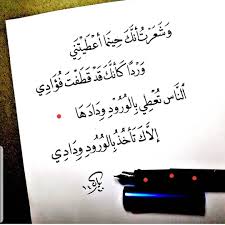 وَشَعَرْتُ أَنَّكَ حِينَمَا أَعْطَيْتَنِي
وَرْدًا كَأَنَّكَ قَدْ قَطَفْتَ فُؤَادِي
النَّاسُ تُعْطِي بِالْوُرُودِ وِدَادَهَا
إِلَّاكَ تَأْخُذُ بِالْوُرُودِ وِدَادِي